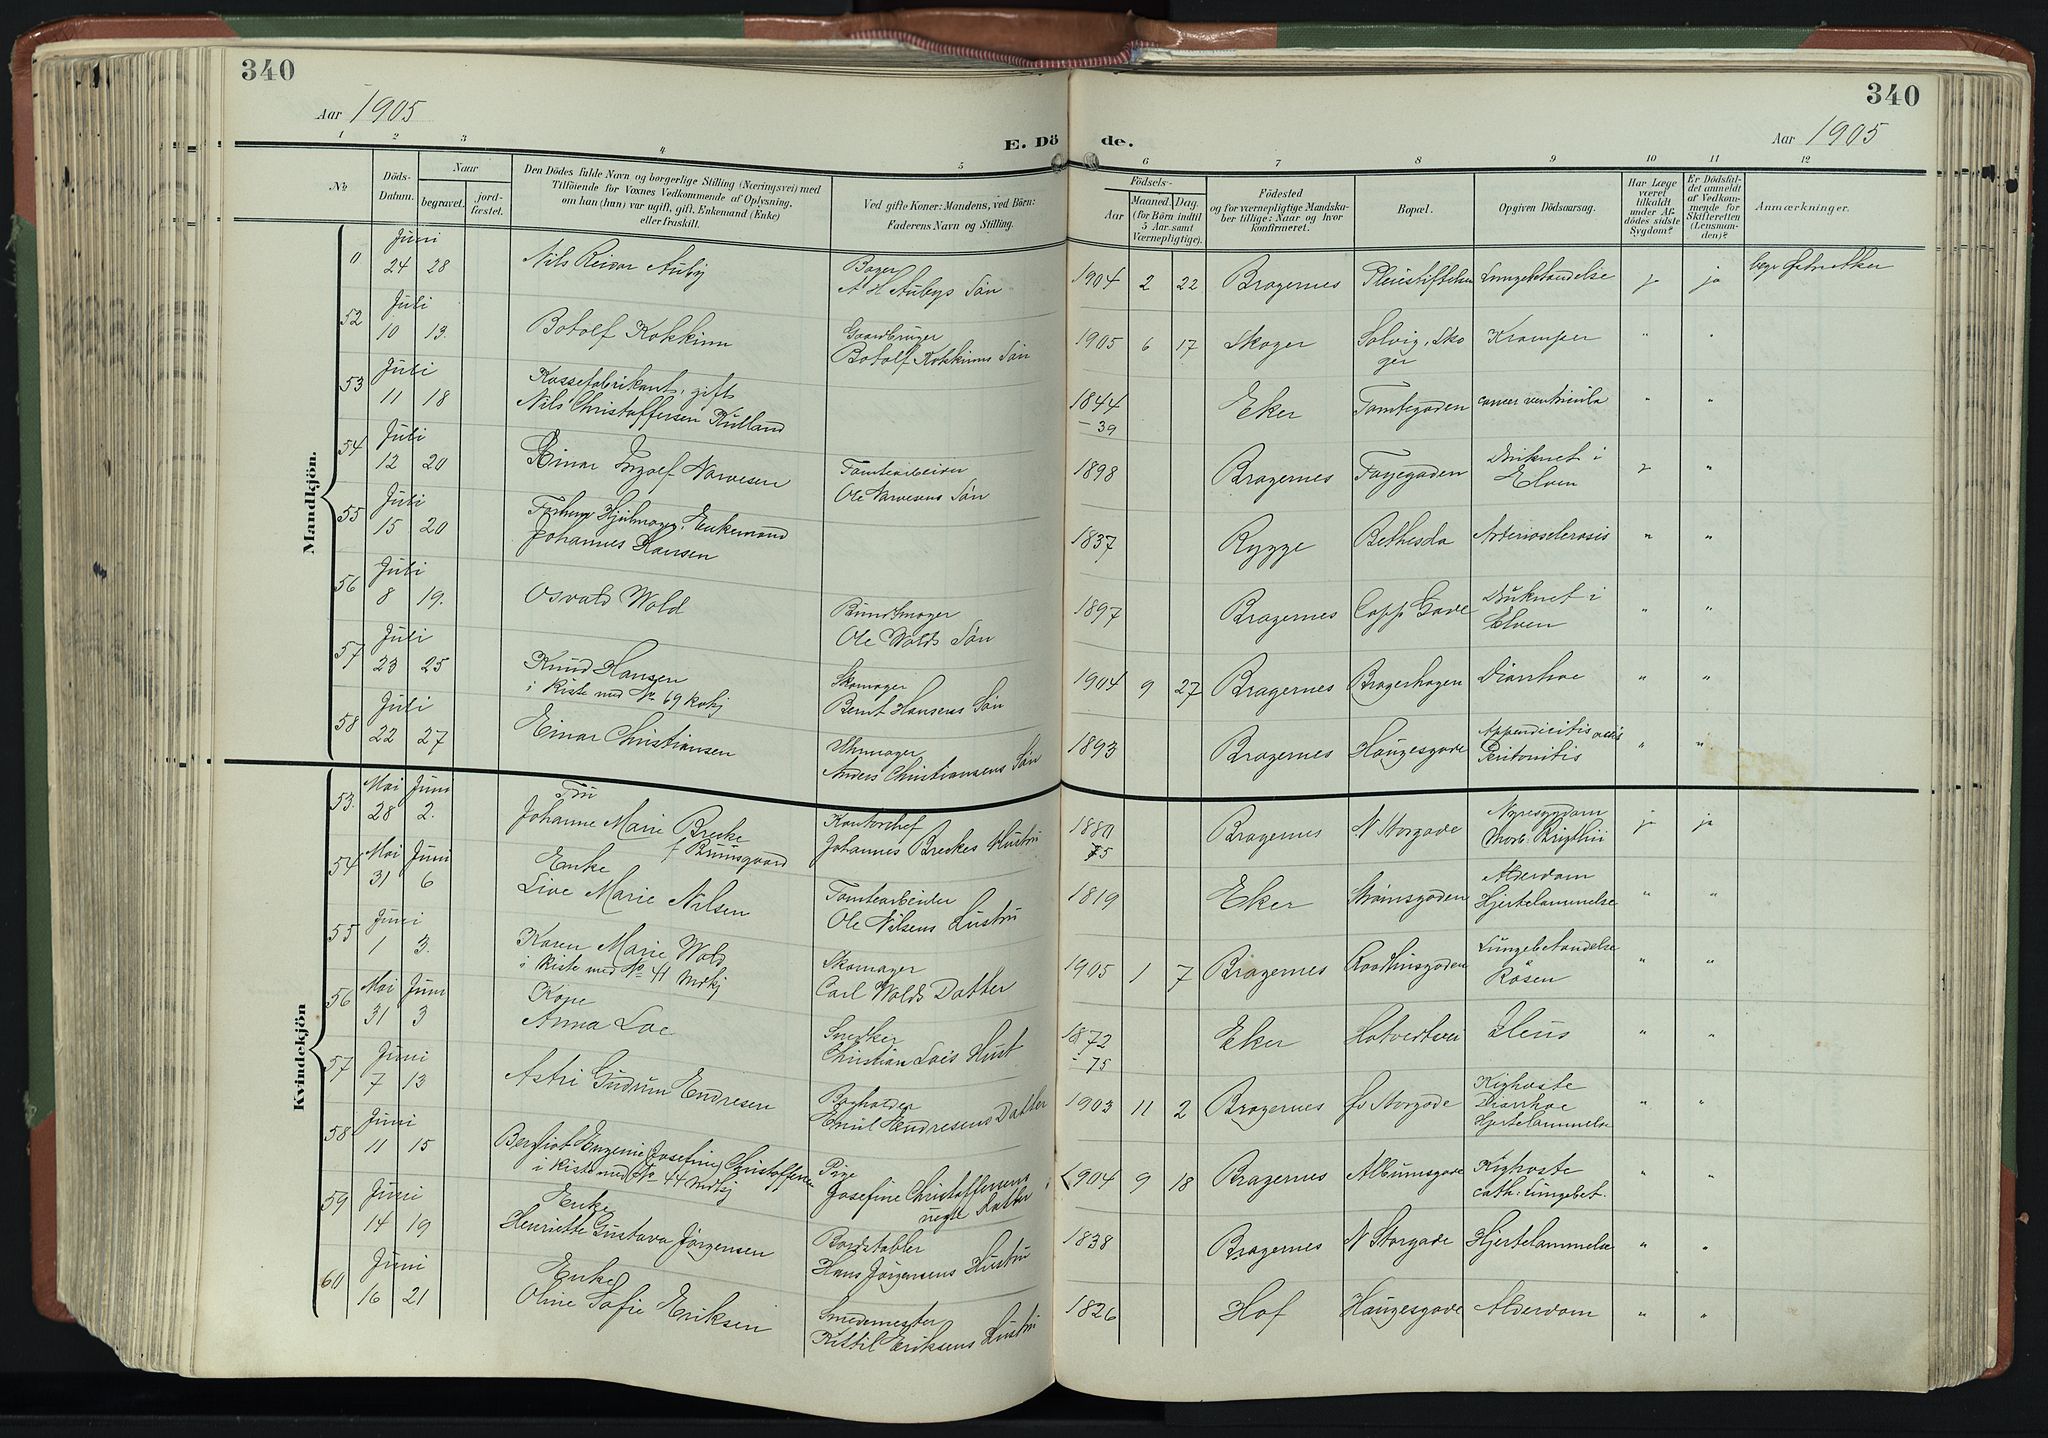 340
340
Aar 1905
Aar 1905
E. Dö
de.
1 2 3 4 5 6 7 8 9 10 11 12
No
Döds-
Datum.
Naar
begravet.
jord-
fæstet.
Den Dödes fulde Navn og borgerlige Stilling (Næringsvei) med
Tilföiende for Voxnes Vedkommende af Oplysning,
om han (hun) var ugift, gift, Enkemand (Enke)
eller fraskilt.
Ved gifte Koner: Mandens, ved Börn:
Faderens Navn og Stilling.
Födsels-
Aar
Maaned.
Dag.
(for Börn indtil
5 Aar samt
Værnepligtige).
Födested
og for værnepligtige Mandska-
ber tillige: Naar og hvor
konfirmeret.
Bopæl.
Opgiven Dödsaarsag.
Har Læge
været
tilkaldt
under Af-
dödes sidste
Sygdom?
Er Dödsfal-
det anmeldt
af Vedkom-
mende for
Skifteretten
(Lensman-
den)?
Anmærkninger.
Mandkjön.
Juni
24 28
Nils Reidar Auby
A H Aubys Sön
1904 2 22 Bragernes Pleiestiftelsen Lungebetændelse ja ja
52
Juli
10 13.
Botolf Kokkinn
Gaardbruger
Botolf Kokkinns Sön
1905 6 17 Skoger Solvig, Sko
ger
Kramper " "
53
Juli
11 18
Kassefabrikant, gift
Nils Christoffersen Rulland
1844
-39
Eker Tomtegaden cancer ventricula " "
54
Juli
12 20
Einar Ingolf Narvesen
Tomtearbeider
Ole Narvesens Sön
1898 Bragernes Fayegaden Druknet i
Elven
"
55
Juli
15 20
Hjulmager, Enkemand
Johannes Hansen
1837 Rygge Bethesda Arteriosclerosis " "
56
Juli
8 19.
Osvald Wold
Buntmager
Ole Wolds Sön
1897 Bragernes Capp. Gade Druknet i
Elven
" "
57
Juli
23 25
Knud Hansen
i Kiste med No 69 Kvkj
Skomager
Bernt Hansens Sön
1904 9 27 Bragernes Bragerhagen Diarrhoe " "
58
Juli
22 27
Einar Christiansen
Uhrmager
Anders Christiansens Sön
1893 Bragernes Haugesgade Appendicitis
Peritonitis
" "
Kvindekjön
53.
Mai Juni
28 2.
Fru
Johanne Marie Brecke
f Bruusgaard
Kontorchef
Johannes Breckes Hustru
1880
75
Bragernes N Storgade Nyresygdom
Morb. Brigthii
ja ja
54
Mai Juni
31 6
Enke
Live Marie Nilsen
Tomtearbeider
Ole Nilsens Hustru
1819 Eker Strömsgaden Alderdom
Hjertelammelse
" "
55
Juni
1 3.
Karen Marie Wold
i Kiste med No 41 Mdkj
Skomager
Carl Wolds Datter
1905 1 7 Bragernes Raadhusgaden Lungebetændelse
Rosen
" "
56
Mai Juni
31 3
Kone
Anna Loe
Snedker
Christian Loes Hust
1872
-75
Eker Hotvedtvei Ileus " "
57
Juni
7 13
Astri Gudrun Endresen
Bogholder
Emil Endresens Datter
1903 11 2 Bragernes Öv Storgade Kighoste
Diarrhoe
Hjertelammelse
" "
58
Juni
11 15
Bergliot Eugenie (Josefine) Christoffersen
i Kiste med No 44 Mdkj
Pige
Josefine Christoffersens
uegte Datter
1904 9 18 Bragernes Albumsgade Kighoste
cath: Lungebet.
" "
59
Juni
14 19
Enke
Henriette Gustava Jörgensen
Bordstabler
Hans Jörgensens Hustru
1838 Bragernes N Storgade Hjertelammelse " "
60
Juni
16 21
Enke
Oline Sofie Eriksen
Smedemester
Kittil Eriksens Hustru
1826 Hof Haugesgade Alderdom " "